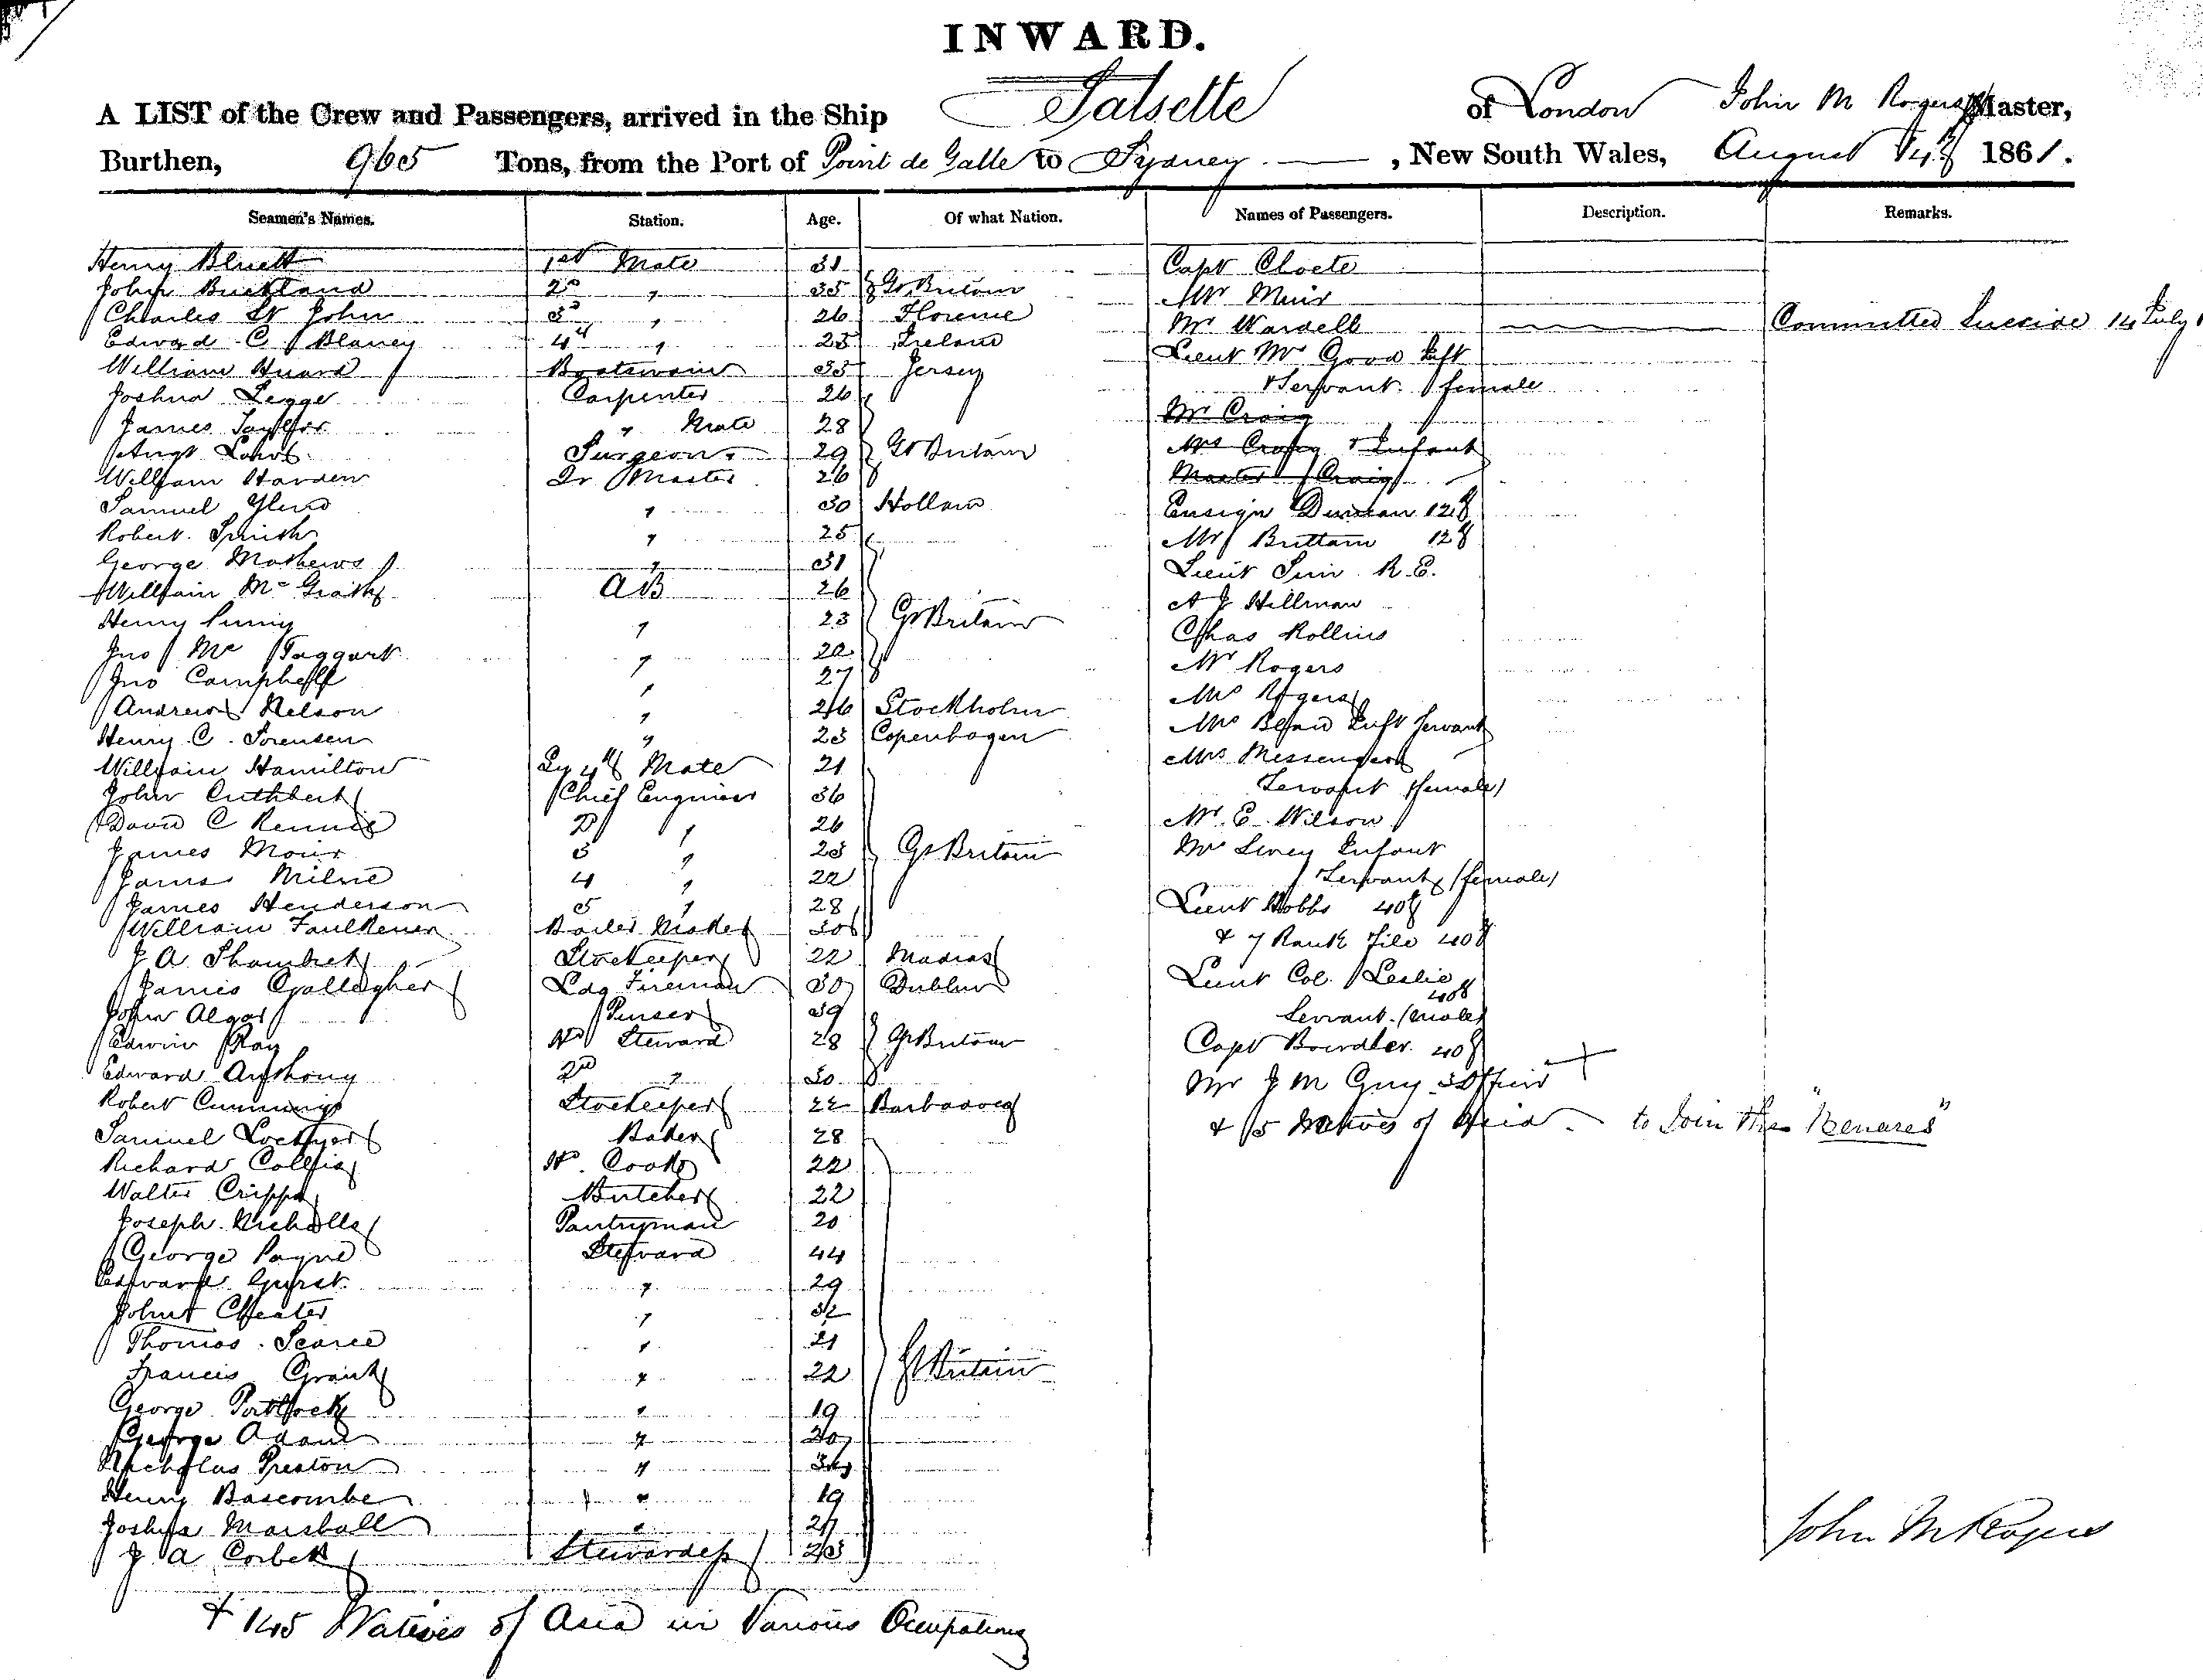 INWARD.
A LIST of the Crew and Passengers, arrived in the Ship Salsette of London John M Rogers Master,
Burthen, 965 Tons, from the Port of Point de Galle to Sydney , New South Wales, August 14th 1861.
Seamen's Names. Station. Age. Of what Nation. Names of Passengers. Description. Remarks.
Henry Bluett 1st Mate 31 Capt Cloete
John Buckland 2nd " 35 Gt Britain Mr Muir
Charles St John 3d " 26 Florence Mr Wardell Committed Suicide 14 July
Edward C Blaney 4th " 25 Ireland Lieut Mc Good
William Huard Boatswain 35 Jersey & Servant female
Joshua Legge Carpenter 26 Mr Craig
James Taylor " Mate 28 Mrs Craig & Infant
Surgeon 29 Gt Britain Master Craig
William Harden Qr Master 26
Samuel " 30 Ensign Duncan 12th
Robert " 25 Mr Brittain 12th
George Mathews " 31 Lieut R.E.
William Mc Grath AB 26 A J Hillman
Henry " 23 Gt Britain Chas Rollins
Jno Mc Taggart " 22 Mr Rogers
Jno Campbell " 27 Mrs Rogers
Andrew Nelson " 26 Stockholm Servant
Henry C. Sorensen " 23 Copenhagen Mrs Messenger
William Hamilton 4th Mate 21 Servant female
John Cuthbert Chief Engineer 36 Mr. E. Wilson
David C Rennie 2 " 26 Infant
James Moir 3 " 23 Gt Britain Servant (female)
James Milne 4 " 22 Lieut Hobbs 40th
James Henderson 5 " 28 & 7 Rank File 40th
William Faulkener Boiler Maker 30
J A Storekeeper 22 Madras Lieut Col. Leslie 40th
James Gallagher Ldg Fireman 30 Dublin Servant (male)
John Algar Purser 39 Capt 40th
Edwin Ray Hd Steward 28 Gt Britain Mr J M Guy
Edward Anthony 2nd " 30 & 5 Natives of Asia to Join the "Benares"
Robert Cummings Storekeeper 22
Samuel Lockyer Baker 28
Richard Collis Hd. Cook 22
Walter Cripps Butcher 22
Joseph Nicholls Pantryman 20
George Payne Steward 44
Edward " 29
John Cheater " 32
Thomas Searle " 21
Francis Grant " 22 Gt Britain
George Portlock " 19
George Adams "
Nicholas Preston "
Henry Bascombe " 19
Joshua Marshall " 27
J A Corbett Stewardess 23
John M Rogers
+ 145 Natives of Asia in Various Occupations